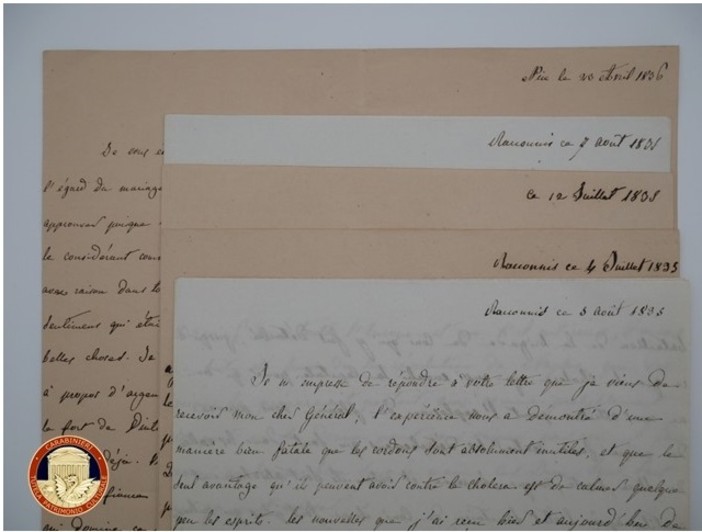 le 20 Avril 1836
Racconnis ce 7 août 1835
ce 12 Juillet 1835
Racconnis ce 4 Juillet 1835
Racconnis ce 8 août 1835
Je vous
l'égard du mariage
approuver puisque
le considérant comme
avez raison dans
sentiment qui était
belles choses. Je
à propos d'argent
le fort de
déjà.
Je m'empresse de répondre à votre lettre que je viens de
recevoir mon cher Général, l'expérience nous a démontré d'une
manière bien fatale que les cordons sont absolument inutiles, et que le
seul avantage qu'il peuvent avoir contre le cholera est de calmer quelque
peu les esprits. les nouvelles que j'ai reçu hier et aujourd'hui de
CARABINIERI
TUTELA PATRIMONIO CULTURALE